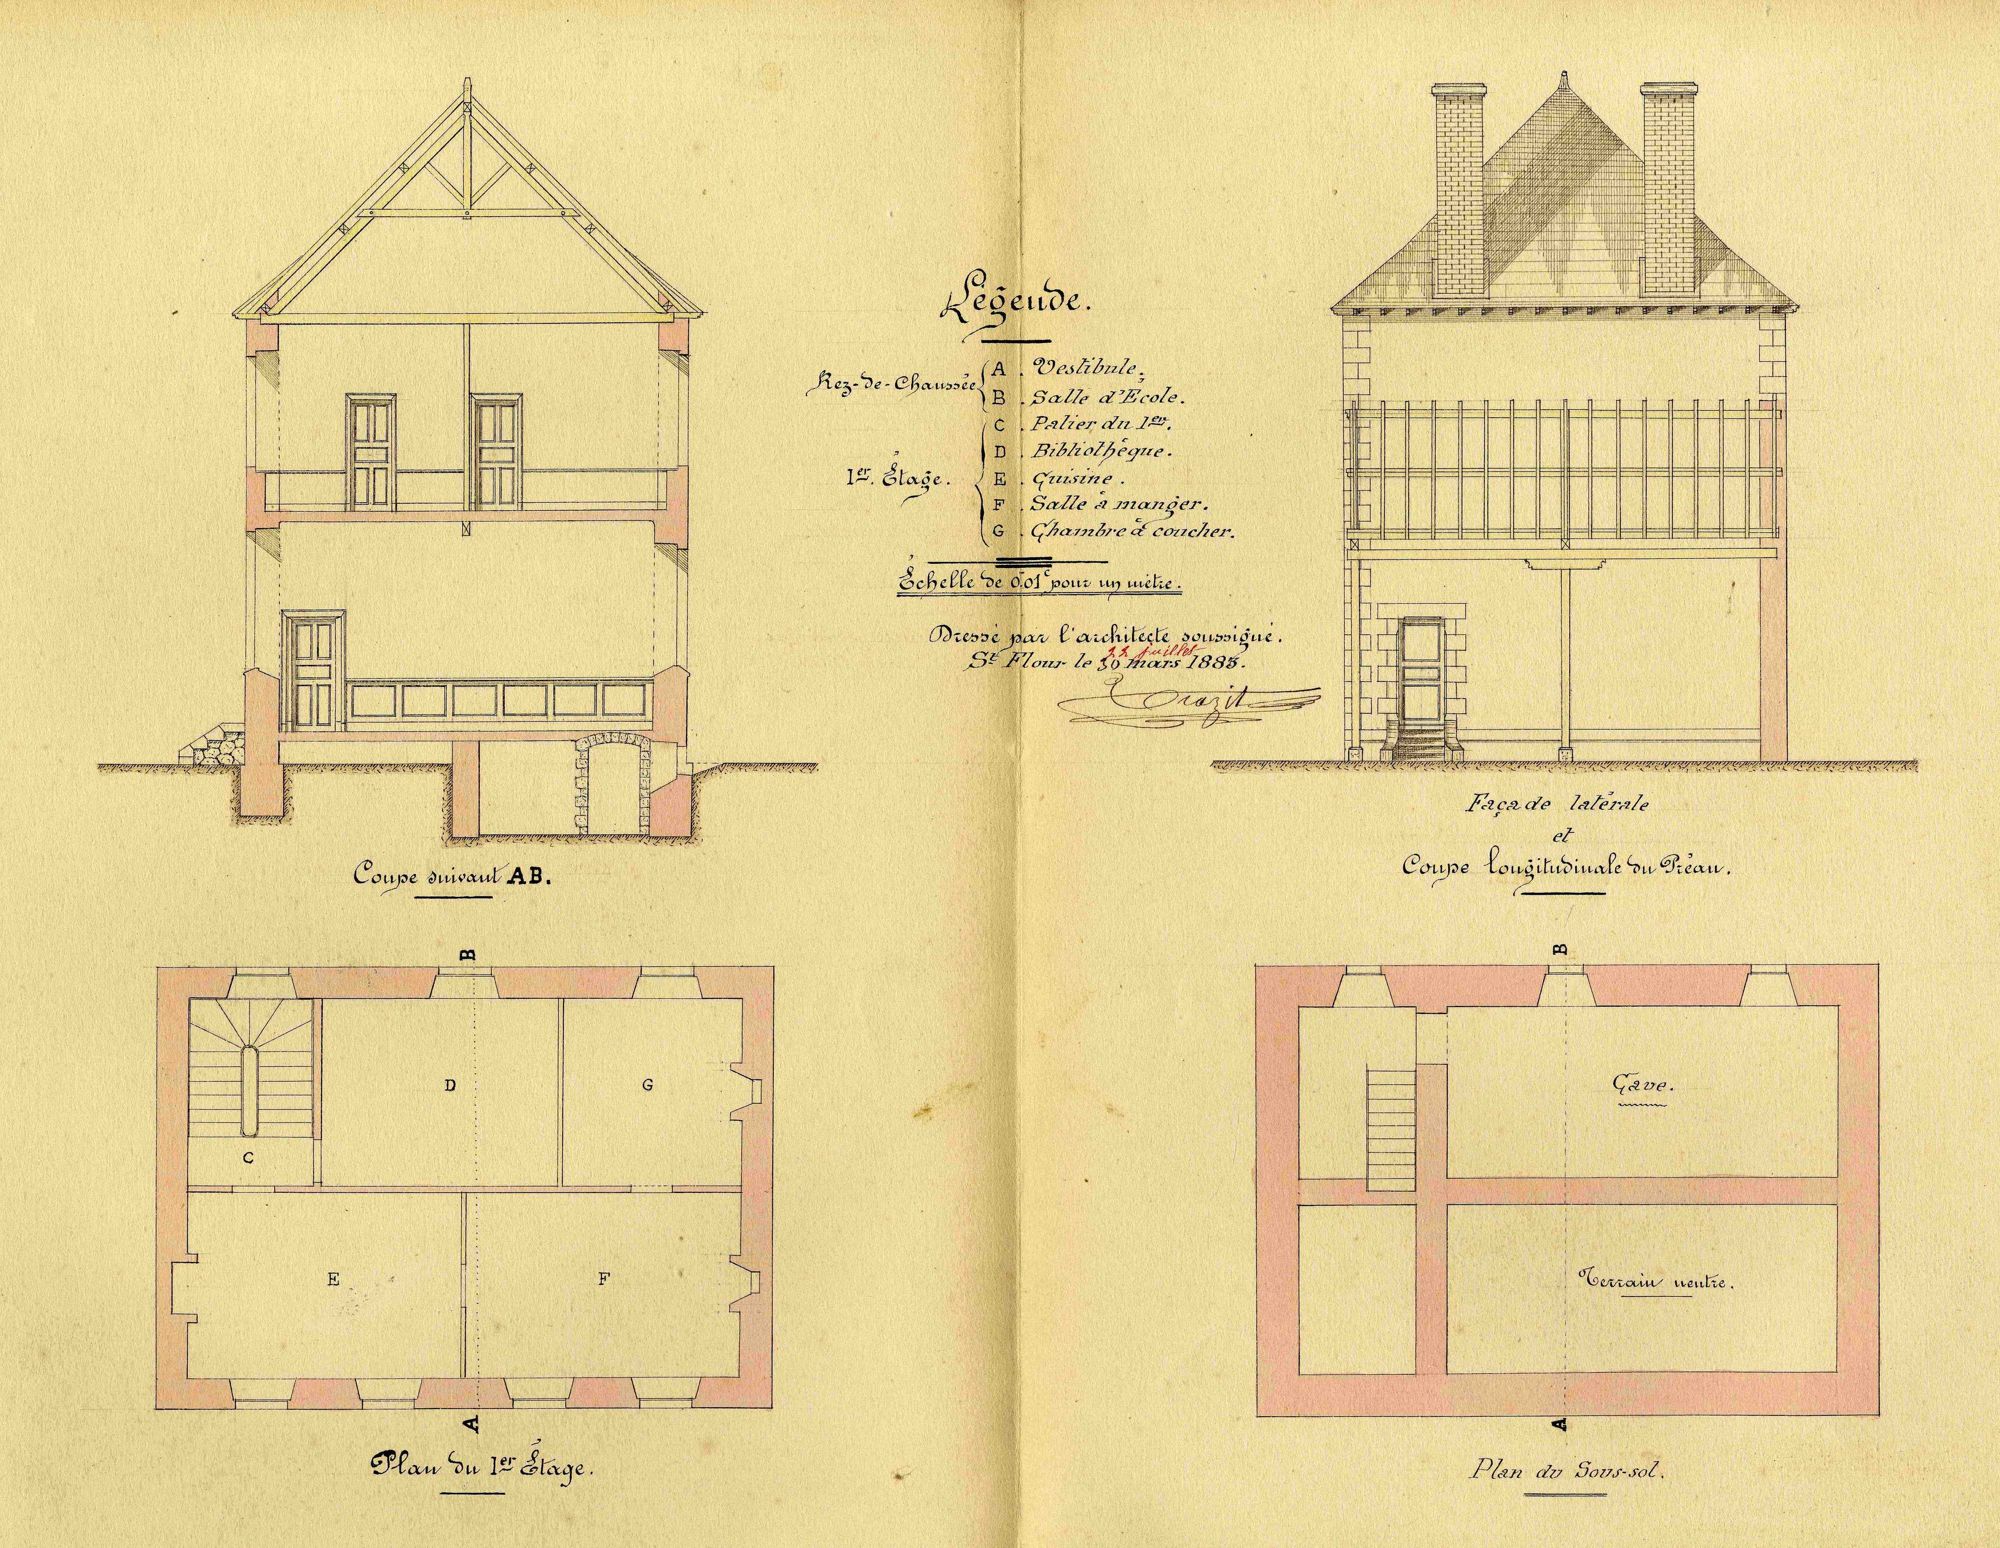 Légende.
Rez-de-Chaussée
A . Vestibule.
B . Salle d'École.
1er. Étage.
C . Palier du 1er.
D . Bibliothèque.
E . Cuisine.
F . Salle à manger.
G . Chambre à coucher.
Échelle de 0,01c pour un mètre.
Dressé par l'architecte soussigné.
22 juillet
St Flour le 30 mars 1883.
Coupe suivant AB.
Façade latérale
et
Coupe longitudinale du Préau.
B
D
G
C
E
F
A
Plan du 1er Étage.
B
Cave.
Terrain neutre.
A
Plan du Sous-sol.